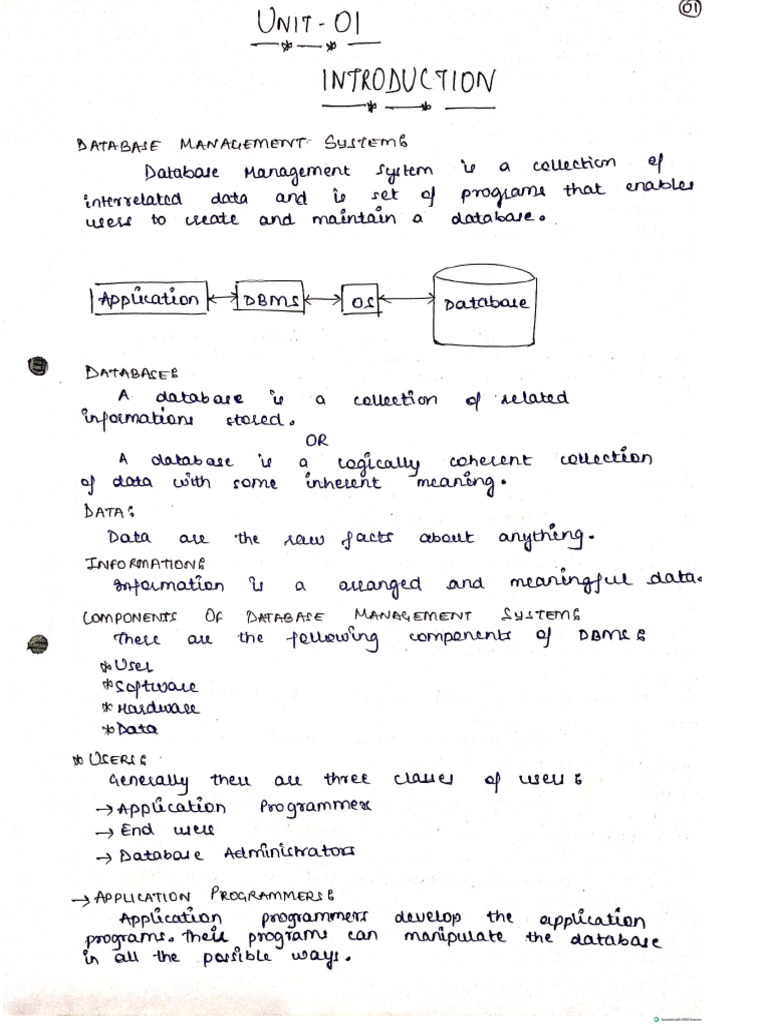 01
UNIT-01
INTRODUCTION
DATABASE MANAGEMENT SYSTEM:
Database Management System is a collection of
interrelated data and is set of programs that enables
users to create and maintain a database.
Application DBMS OS Database
DATABASE:
A database is a collection of related
informations stored.
OR
A database is a logically coherent collection
of data with some inherent meaning.
DATA:
Data are the raw facts about anything.
INFORMATION:
Information is a arranged and meaningful data.
COMPONENTS OF DATABASE MANAGEMENT SYSTEM:
There are the following components of DBMS:
* User
* Software
* Hardware
* Data
* USERS:
Generally there are three classes of users:
→ Application Programmers
→ End users
→ Database Administrators
→ APPLICATION PROGRAMMERS:
Application programmers develop the application
programs. Their programs can manipulate the database
in all the possible ways.
Scanned with OKEN Scanner